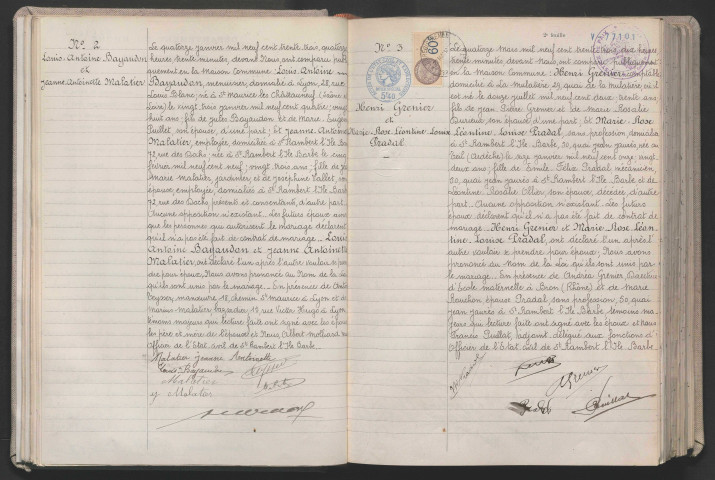 N° 2
Louis Antoine Bayaudon
et
Jeanne Antoinette Malatier
Le quatorze janvier mil neuf cent trente trois, quatorze
heures trente minutes, devant Nous ont comparu publi-
quement en la Maison Commune: Louis Antoine
Bayaudon, menuisier, domicilié à Lyon, 28, rue
Louis Blanc, né à St Maurice lès Châteauneuf (Saône et
Loire) le vingt trois janvier mil neuf cent quatre, vingt
huit ans, fils de Jules Bayaudon et de Marie
Guillet son épouse, d'une part; Et Jeanne Antoinette
Malatier, employée, domiciliée à St Rambert l'Ile Barbe
72, rue des Docks, née à St Rambert l'Ile Barbe le cinq
février mil neuf cent neuf, vingt trois ans, fille de
Marie Malatier, jardinier et de Joséphine Vallet,
épouse, employée, domiciliés à St Rambert l'Ile Barbe
72 rue des Docks présents et consentants, d'autre part.
Aucune opposition n'existant. Les futurs époux ainsi
que les personnes qui autorisent le mariage déclarent
qu'il n'a pas été fait de contrat de mariage. Louis
Antoine Bayaudon et Jeanne Antoinette
Malatier, ont déclaré l'un après l'autre vouloir se pren-
dre pour époux, Nous avons prononcé au Nom de la Loi
qu'ils sont unis par le mariage. En présence de
manœuvre, 18, chemin St Maurice à Lyon et de
Marius Malatier, 13, rue Victor Hugo à Lyon
témoins majeurs qui lecture faite ont signé avec les époux
les père et mère de l'épouse et Nous, Albert
Officier de l'Etat civil de St Rambert l'Ile Barbe.
Malatier Jeanne Antoinette
Louis Bayaudon
Malatier
J Malatier
N° 3
Henri Grenier
et
Marie Rose Léontine Louise
Pradal
60
5f40
2e feuille
Le quatorze Mars mil neuf cent trente trois, dix heures
trente minutes, devant Nous ont comparu publiquement
en la Maison Commune: Henri Grenier, comptable
domicilié à La Mulatière, 29, quai de la Mulatière, où il
est né le douze juillet mil neuf cent deux, trente ans
fils de Jean Pierre Grenier et de Marie Rosalie
Durieux son épouse, d'une part; Et Marie Rose
Léontine Louise Pradal, sans profession, domiciliée
à St Rambert l'Ile Barbe, 50, quai Jean Jaurès, née au
Teil (Ardèche) le janvier mil neuf cent onze, vingt
deux ans, fille de Emile Félix Pradal, mécanicien,
50, quai Jean Jaurès à St Rambert l'Ile Barbe et de
Léontine Rosalie Ollier, son épouse, décédée, d'autre
part. Aucune opposition n'existant. Les futurs
époux déclarent qu'il n'a pas été fait de contrat de
mariage. Henri Grenier et Marie Rose Léon-
tine Louise Pradal, ont déclaré l'un après l'
autre vouloir se prendre pour époux, Nous avons
prononcé au Nom de la Loi qu'ils sont unis par
le mariage. En présence de Andréa Grenier, Directrice
d'école maternelle à Bron (Rhône) et de Marie
épouse Pradal sans profession, 50, quai
Jean Jaurès à St Rambert l'Ile Barbe témoins ma-
jeurs qui lecture faite ont signé avec les époux et Nous
Francis Guillot, adjoint délégué aux fonctions d'
Officier de l'Etat civil de St Rambert l'Ile Barbe.
Grenier